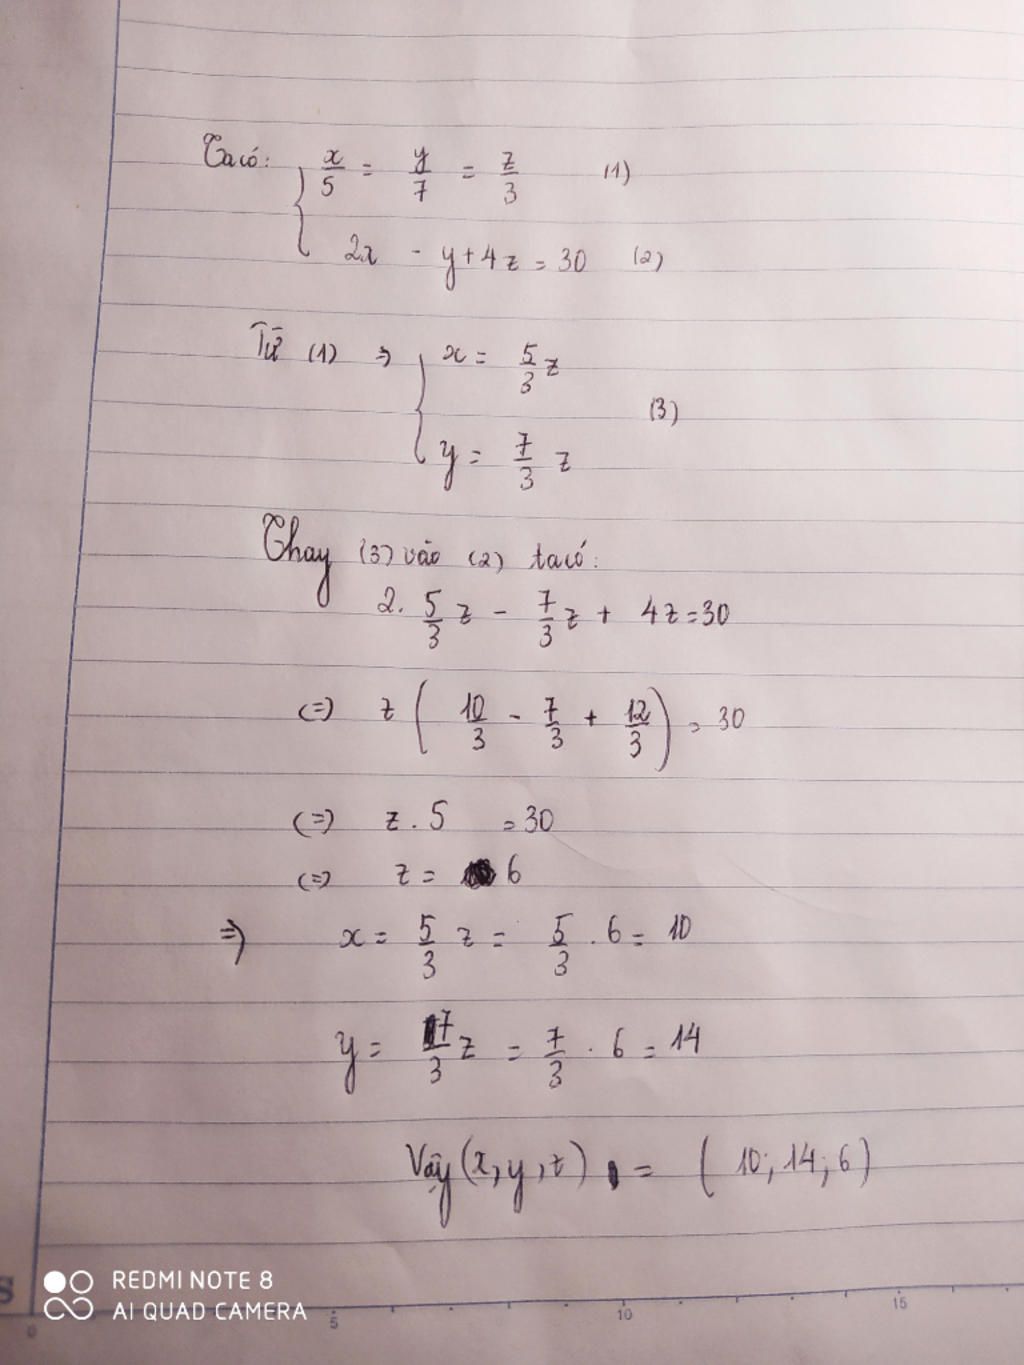 Ta có: x/5 = y/7 = z/3 (1)
2x - y + 4z = 30 (2)
Từ (1) => x = 5/3 z
(3)
y = 7/3 z
Thay (3) vào (2) ta có:
2. 5/3 z - 7/3 z + 4z = 30
(=) z ( 10/3 - 7/3 + 12/3 ) = 30
(=) z . 5 = 30
(=) z = 6
=> x = 5/3 z = 5/3 . 6 = 10
y = 7/3 z = 7/3 . 6 = 14
Vậy (x, y, z) = ( 10; 14; 6 )
S
REDMI NOTE 8
AI QUAD CAMERA
0 5 10 15